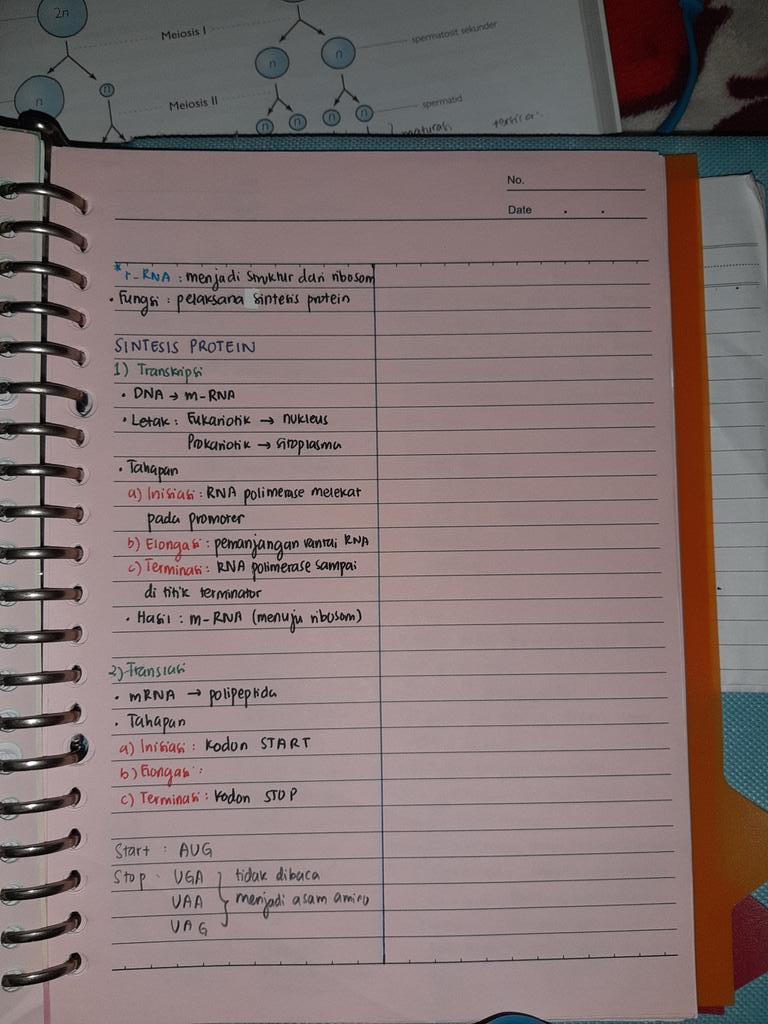 2n
Meiosis I
n
n
spermatosit sekunder
n
n
Meiosis II
spermatid
n
n
n
n
maturasi
No.
Date . .
* r-RNA : menjadi struktur dari ribosom
• Fungsi : pelaksana sintesis protein
SINTESIS PROTEIN
1) Transkripsi
• DNA → m-RNA
• Letak : Eukariotik → nukleus
Prokariotik → sitoplasma
• Tahapan
a) Inisiasi : RNA polimerase melekat
pada promoter
b) Elongasi : pemanjangan rantai RNA
c) Terminasi : RNA polimerase sampai
di titik terminator
• Hasil : m-RNA (menuju ribosom)
2) Translasi
• mRNA → polipeptida
• Tahapan
a) Inisiasi : Kodon START
b) Elongasi :
c) Terminasi : Kodon STOP
Start : AUG
Stop : UGA } tidak dibaca
UAA } menjadi asam amino
UAG